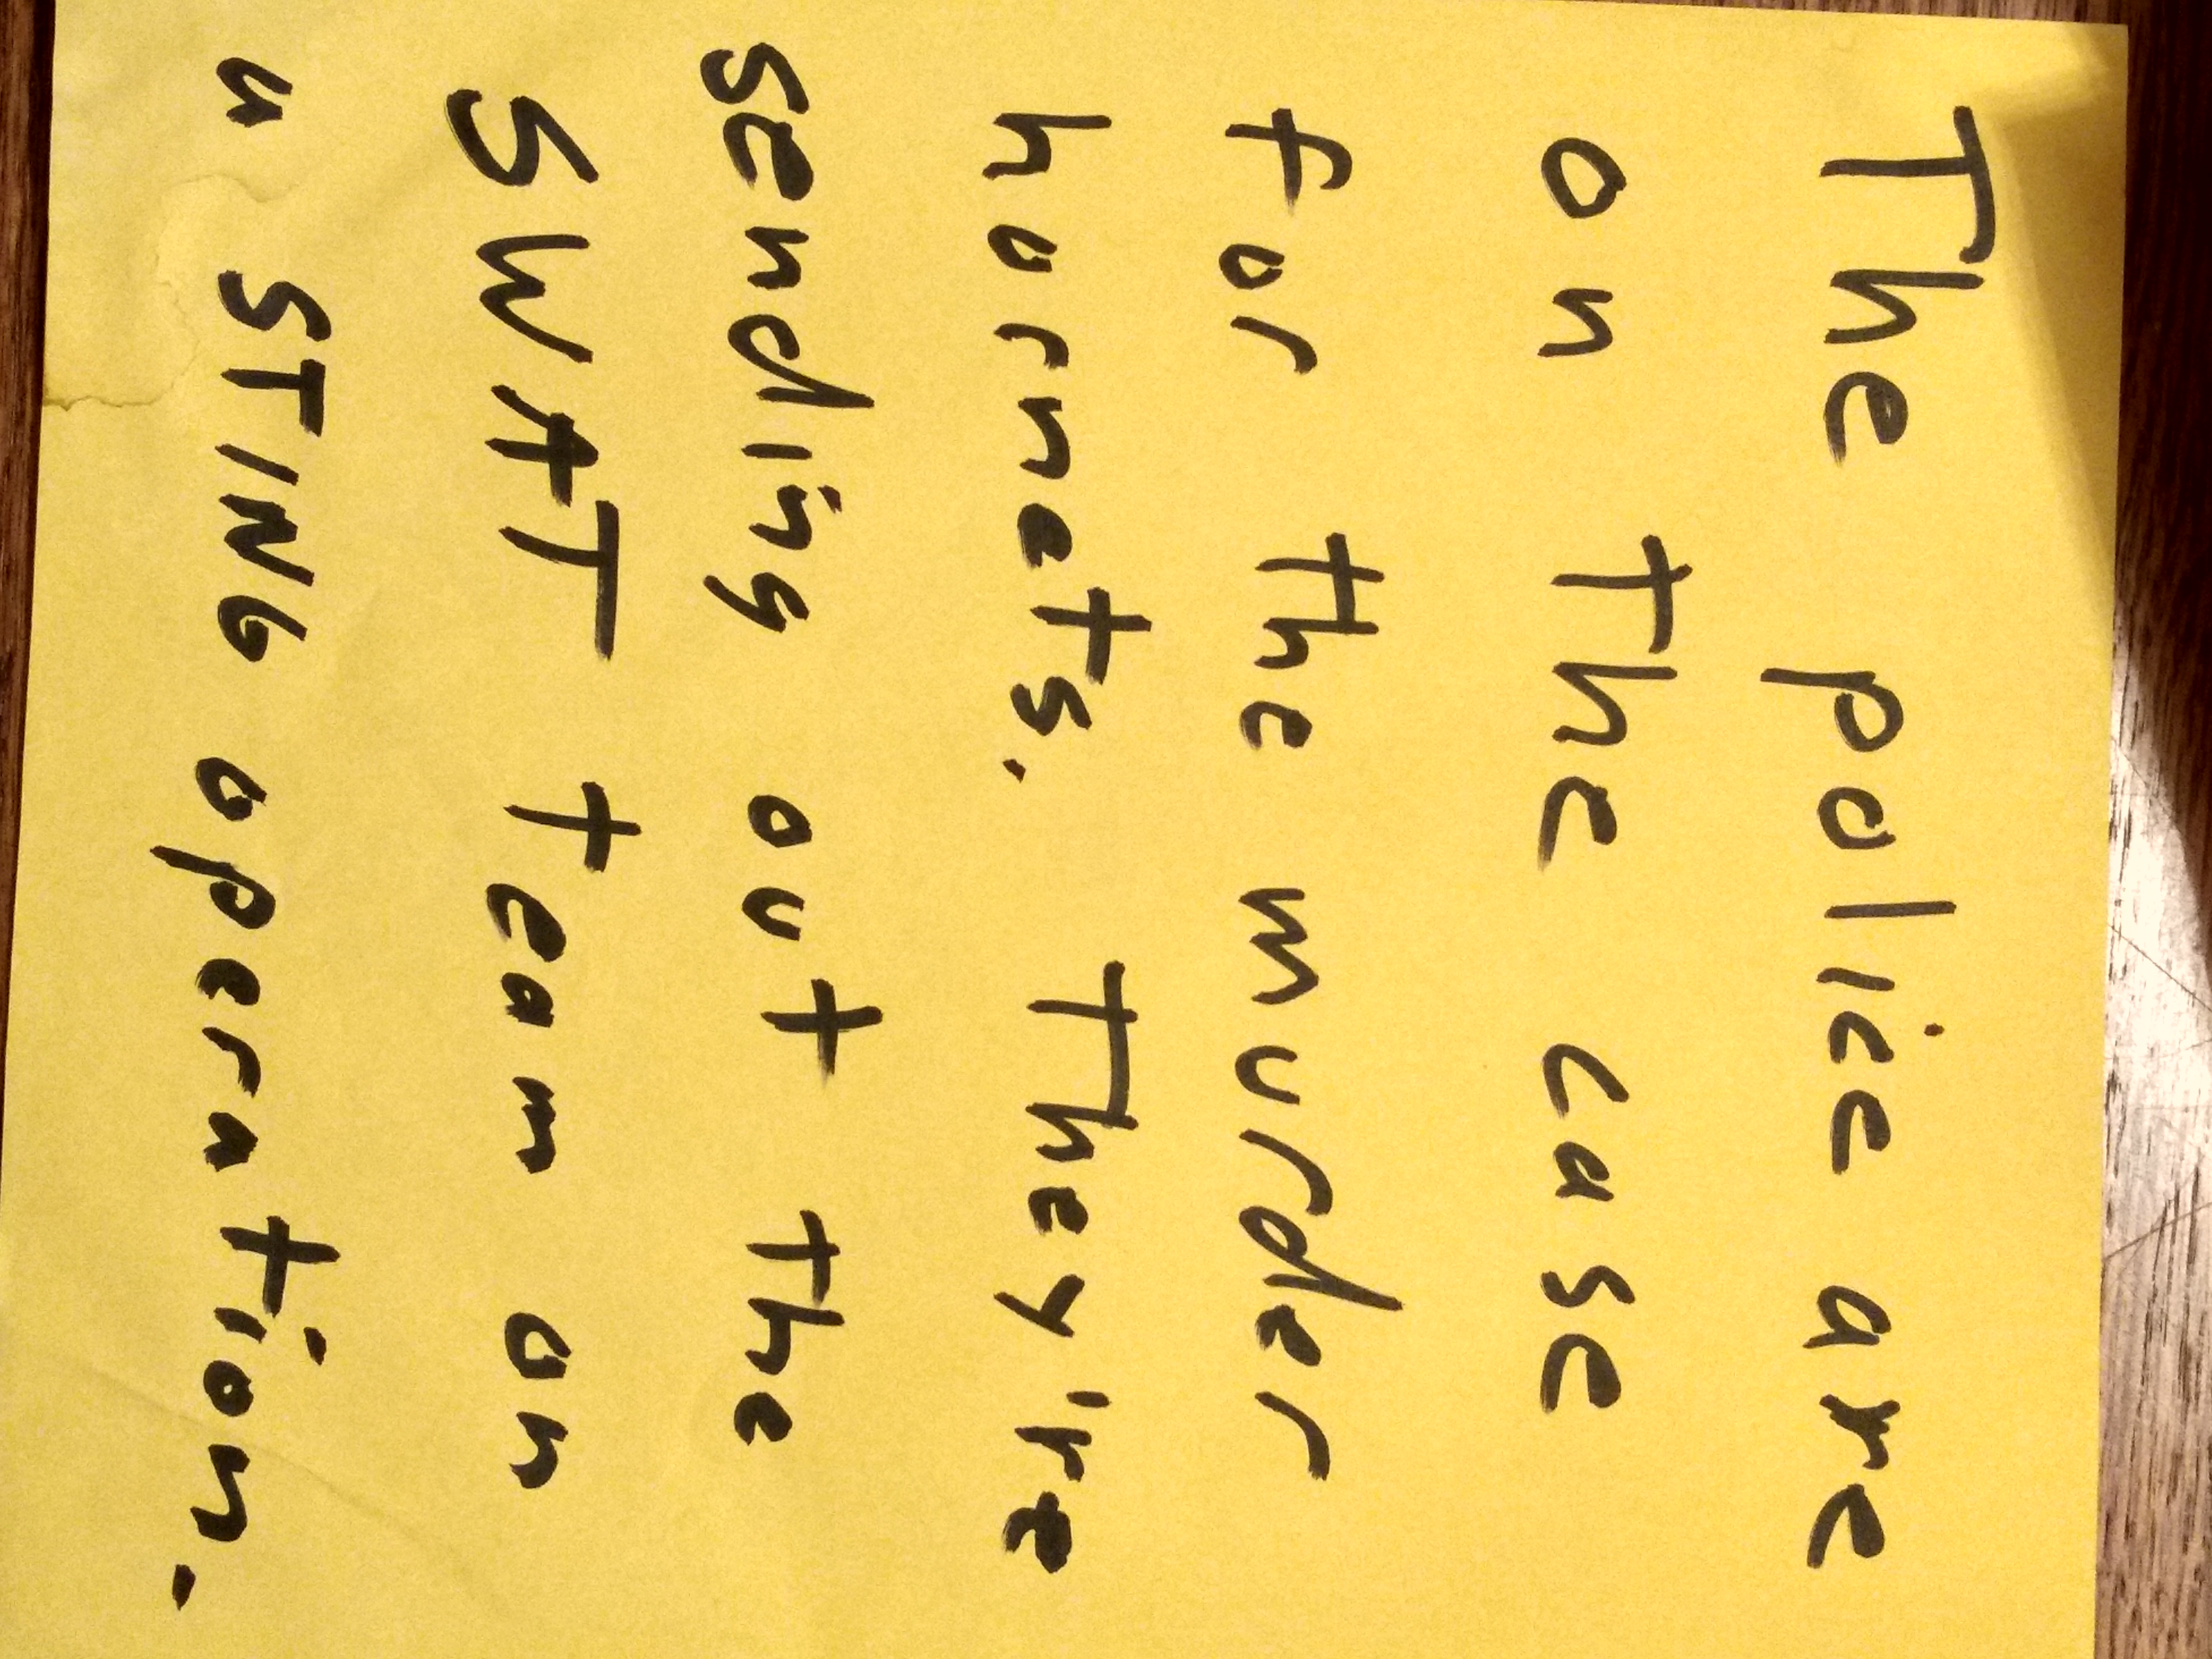 The police are
on the case
for the murder
hornets. They're
sending out the
SWAT team on
a STING operation.